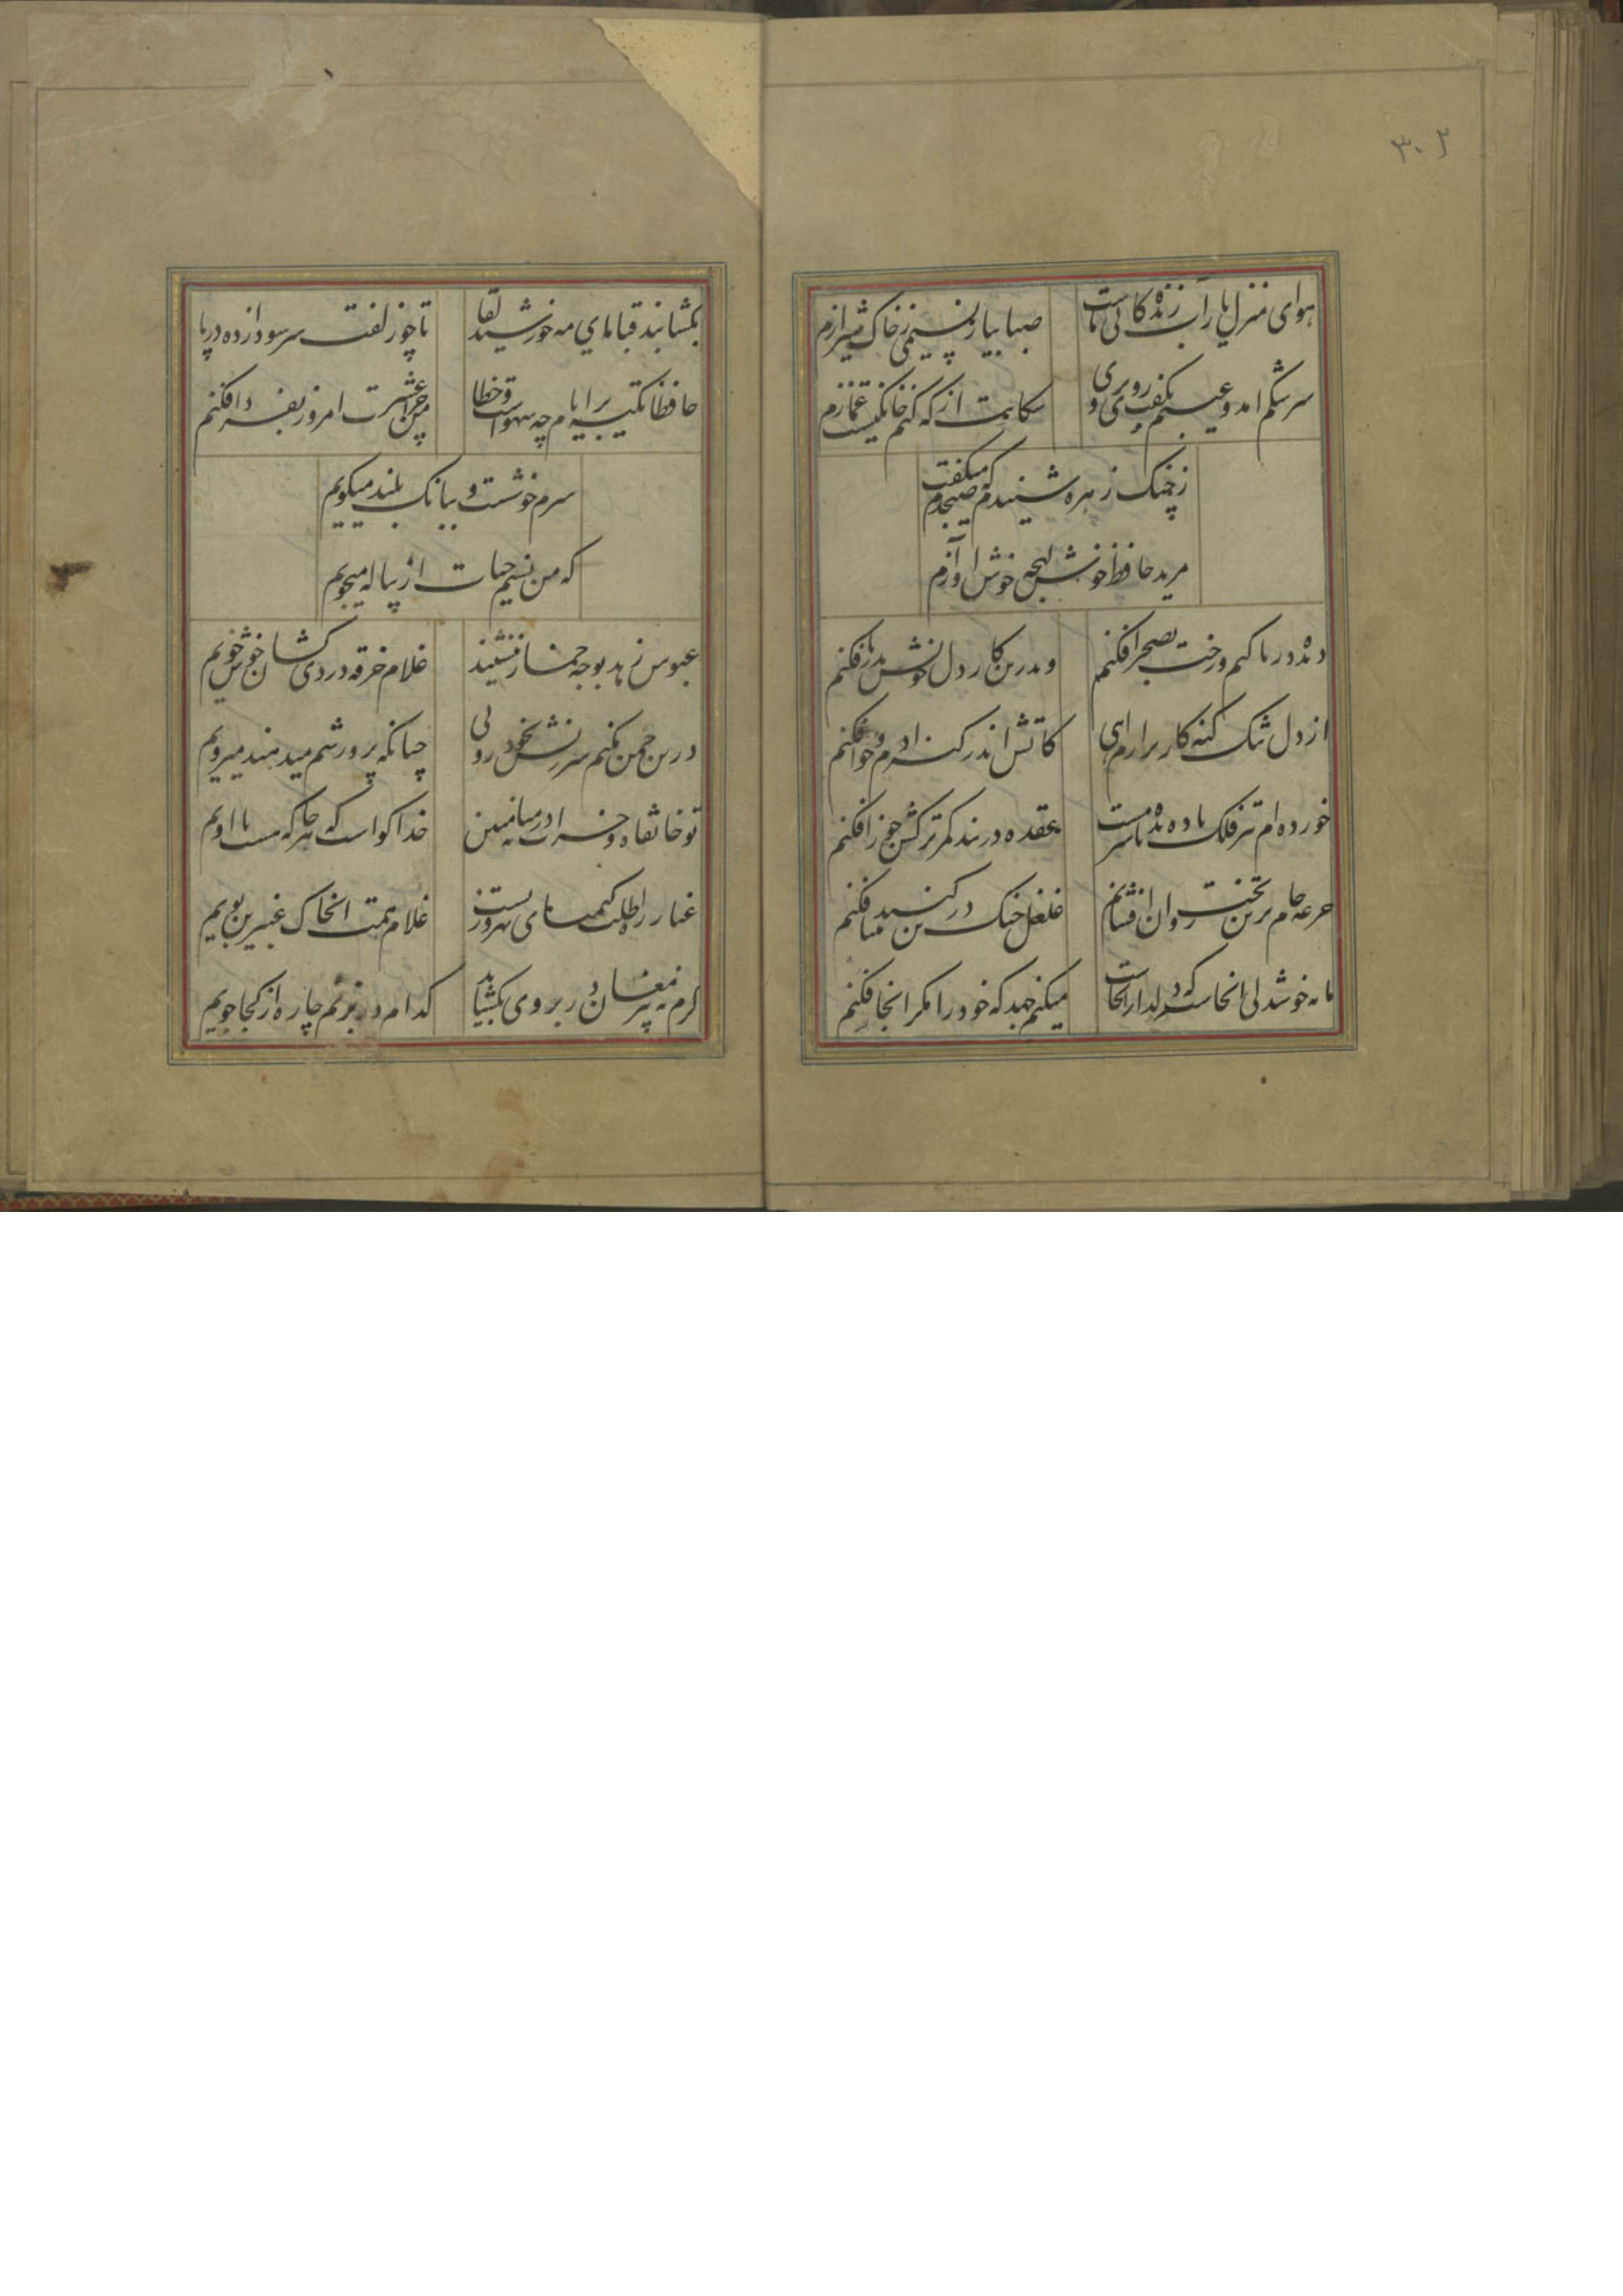 ۳۰۲
هوای منزل یار آب زندگانی ماست صبا بیار نسیمی ز خاک شیرازم
سرشکم امد و عیبم بگفت روی بروی شکایت از که کنم خانگیست غمازم
ز چنک زهره شنیدم که صبحدم میکفت
مرید حافظ خوش لهجه خوش اوازم
دیده دریا کنم و رخت بصحرا فکنم وندرین کار دل خویش بدریا فکنم
از دل تنک کنه کار برارم اهی کاتش اندر کنه ادم و حوا فکنم
خورده ام تیر فلک باده بده تا سرمست عقده در بند کمر ترکش جوزا فکنم
جرعه جام برین تخت روان افشانم غلغل چنک درین کنبد مینا فکنم
مایه خوشدلی انجاست که دلدار انجاست میکنم جهد که خود را مکر انجا فکنم
بکشا بند قبا ای مه خورشید لقا تا چو زلفت سر سودازده در پا
حافظا تکیه بر ایام چه سهوست و خطا من چرا عشرت امروز بفردا فکنم
سرم خوشست و ببانک بلند میکویم
که من نسیم حیات از پیاله میجویم
عبوس زهد بوجه خمار ننشیند غلام خرقه دردی کشان خوش خویم
درین چمن نکنم سرزنش بخود رویی چنانکه پرورشم میدهند میرویم
تو خانقاه و خرابات در میانه مبین خدا کواست که هر جا که هست با اویم
غبار راه طلب کیمیای بهروزیست غلام همت ان خاک عنبرین بویم
کرم نه پیر مغان در بروی بکشاید کدام در بزنم چاره از کجا جویم